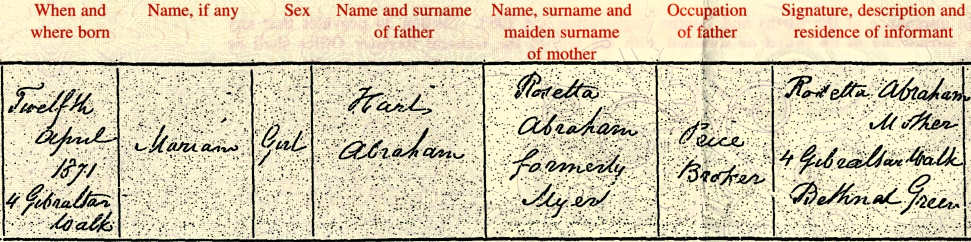 When and
where born
Name, if any
Sex
Name and surname
of father
Name, surname and
maiden surname
of mother
Occupation
of father
Signature, description and
residence of informant
Twelfth
April
1871
4 Gibraltar
Walk
Mariam
Girl
Hart
Abraham
Rosetta
Abraham
formerly
Myers
Peice
Broker
Rosetta Abraham
Mother
4 Gibraltar Walk
Bethnal Green